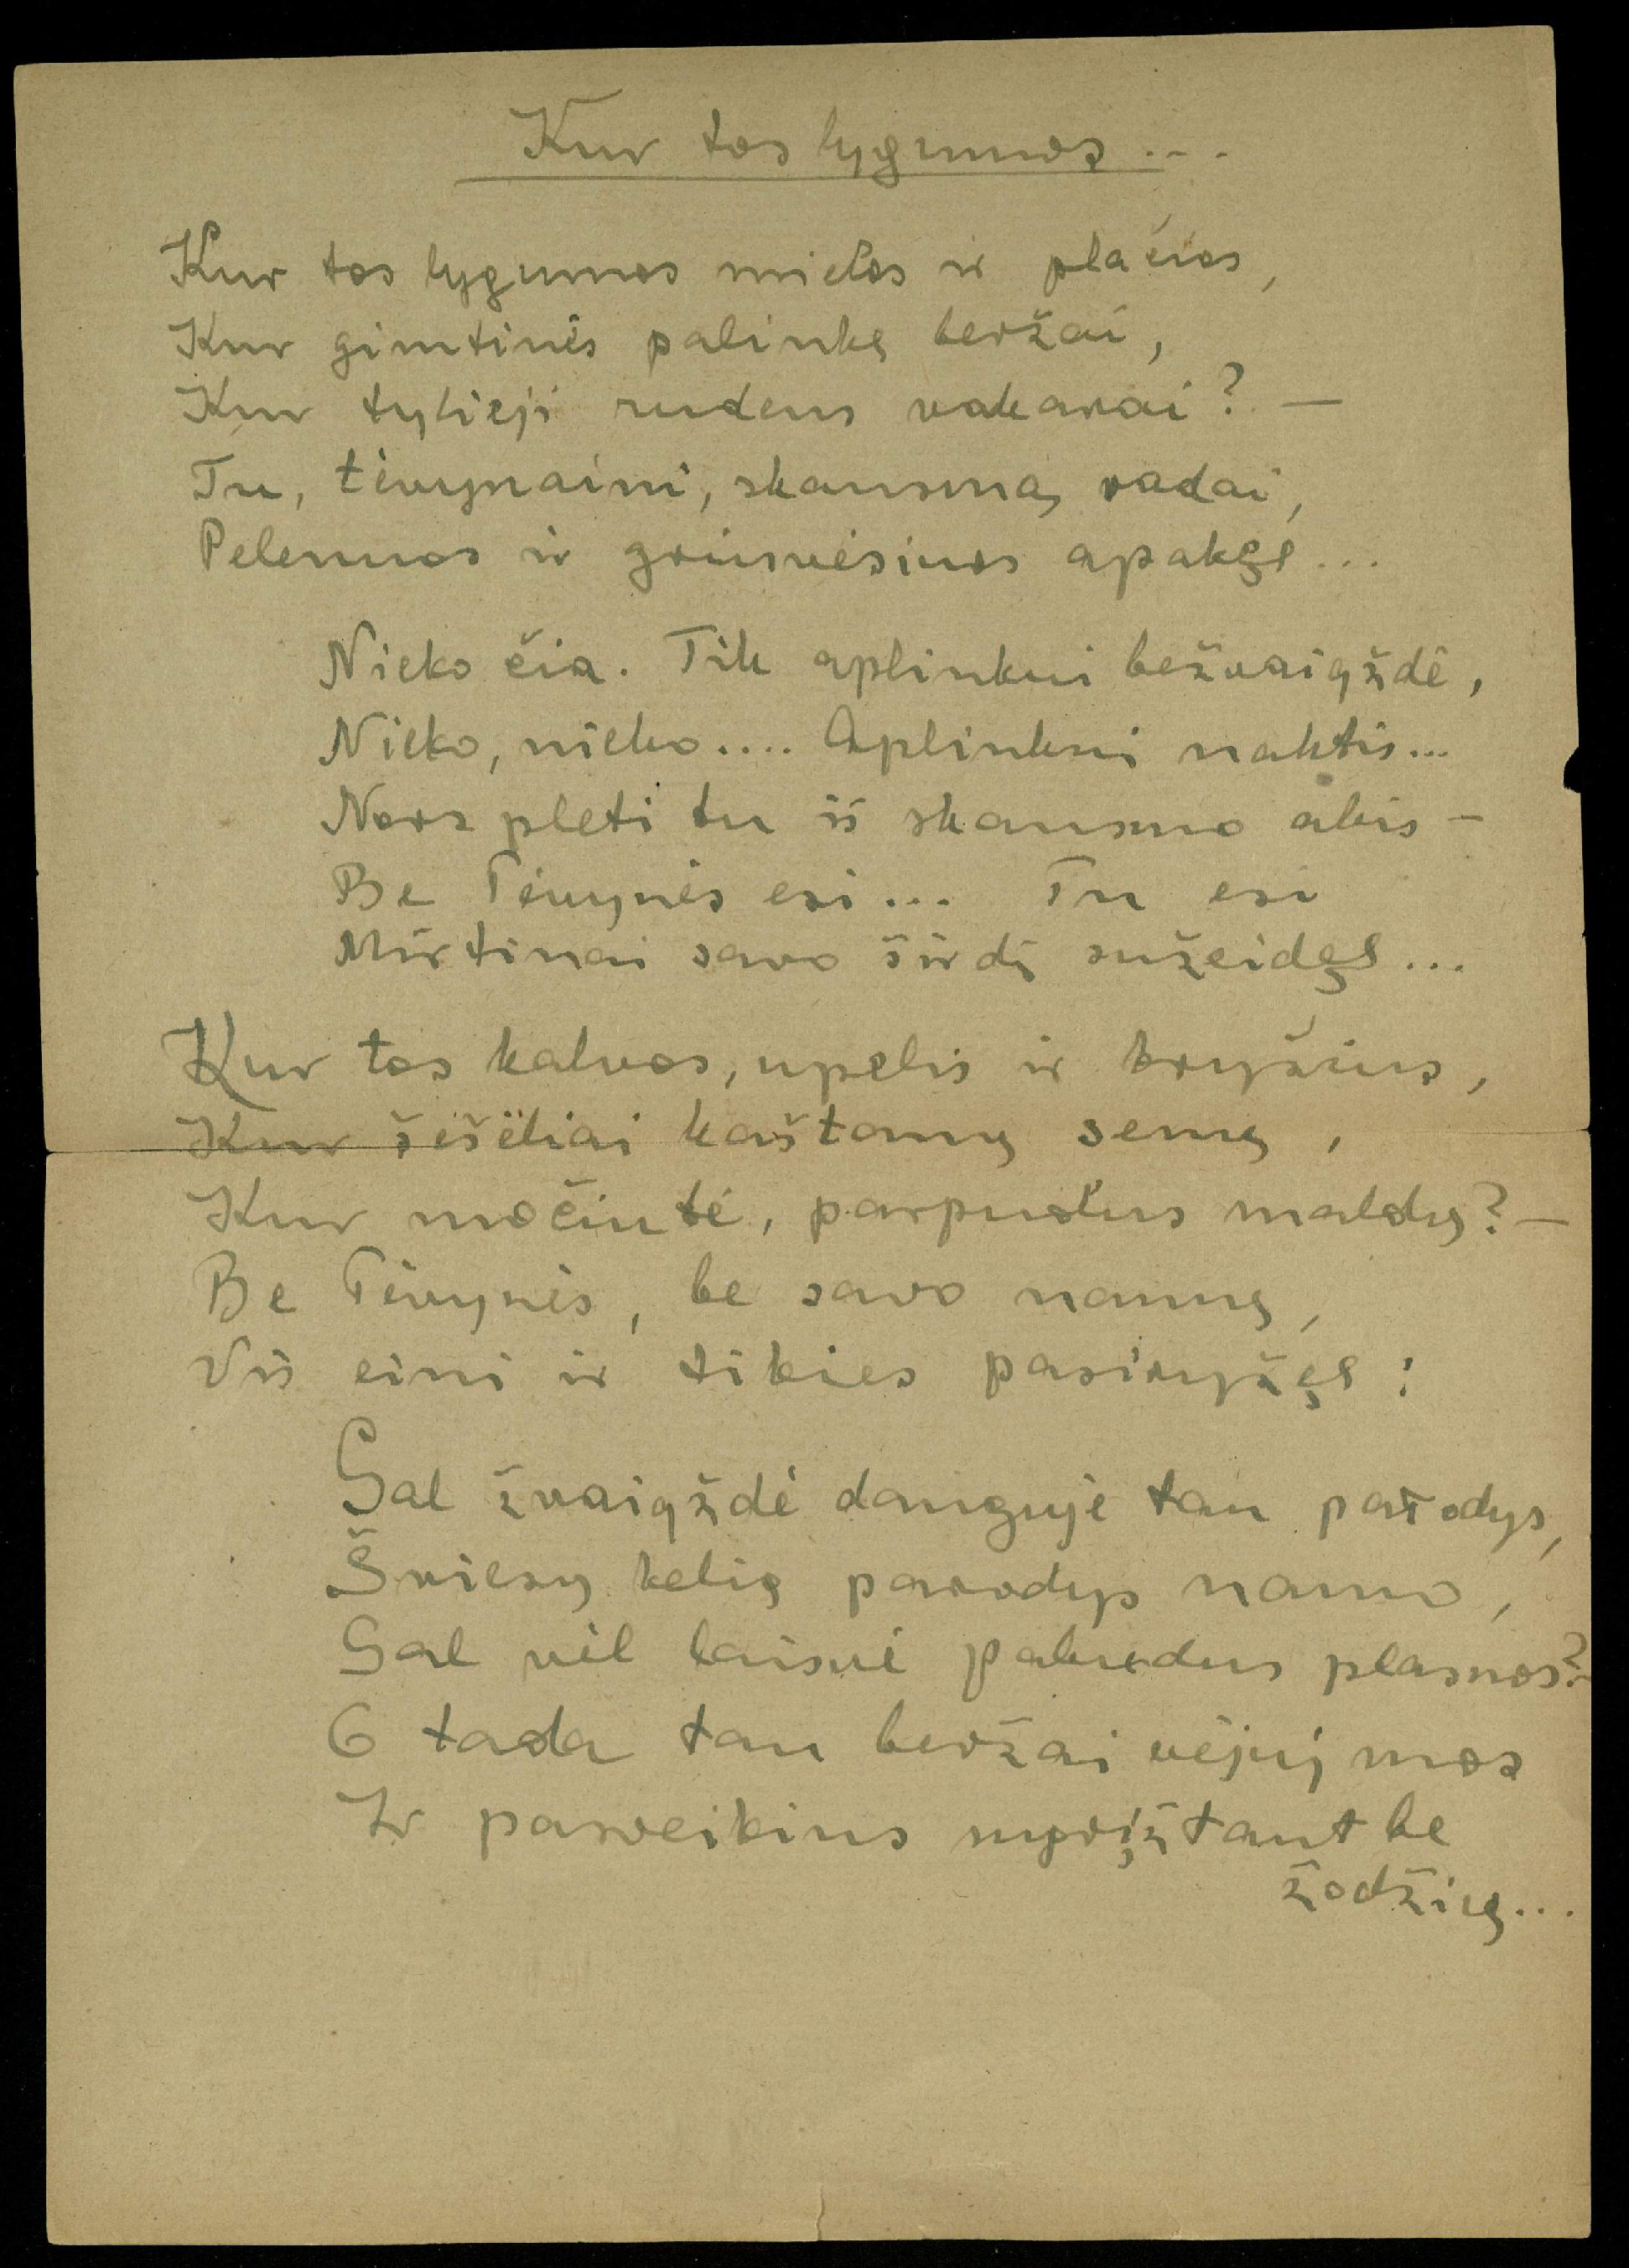 Kur tos lygumos...
Kur tos lygumos mielos ir plačios,
Kur gimtinės palinkę beržai,
Kur tylieji rudens vakarai? —
Tu, tėvynaini, skausmą radai,
Pelenuos ir griuvėsiuos apakęs...
Nieko čia. Tik aplinkui bežvaigždė,
Nieko, nieko.... Aplinkui naktis...
Nors pleti tu iš skausmo akis —
Be Tėvynės esi... Tu esi
Mirtinai savo širdį sužeidęs...
Kur tos kalvos, upelis ir kryžius,
Kur šešėliai kaštanų senų,
Kur močiutė, parpuolus maldų? —
Be Tėvynės, be savo namų,
Vis eini ir tikies pasiryžęs:
Gal žvaigždė danguje tau parodys,
Šviesų kelią parodys namo,
Gal vėl laisvė pabudus plasnos? —
O tada tau beržai vėjuj mos
Ir pasveikins sugrįžtant be
žodžių...